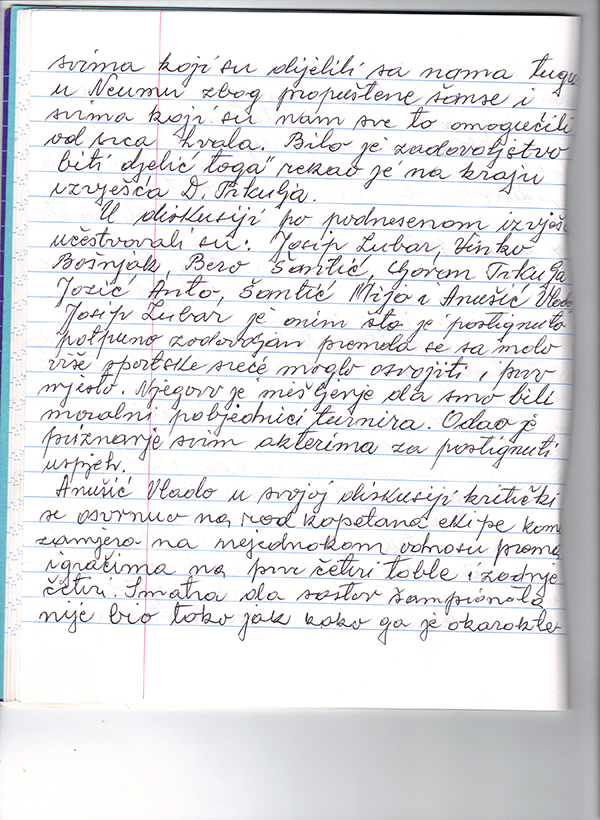 svima koji su dijelili sa nama tugu
u Neumu zbog propuštene šanse i
svima koji su nam sve to omogućili
od srca hvala. Bilo je zadovoljstvo
biti djelić toga" rekao je na kraju
izvješća D. Trkulja.
U diskusiji po podnesenom izvješ
učestvovali su: Josip Lubar, Vinko
Bošnjak, Bero Šantić, Goran Trkulja
Jozić Anto, Šantić Mijo i Anušić Vlado
Josip Lubar je onim što je postignuto
potpuno zadovoljan premda se sa malo
više sportske sreće moglo osvojiti i prvo
mjesto. Njegovo je mišljenje da smo bili
moralni pobjednici turnira. Odao je
priznanje svim akterima za postignuti
uspjeh.
Anušić Vlado u svojoj diskusiji kritički
se osvrnuo na rad kapetana ekipe kom
zamjera na nejednakom odnosu prema
igračima na prve četiri table i zadnje
četiri. Smatra da sastav šampionata
nije bio tako jak kako ga je okarakte